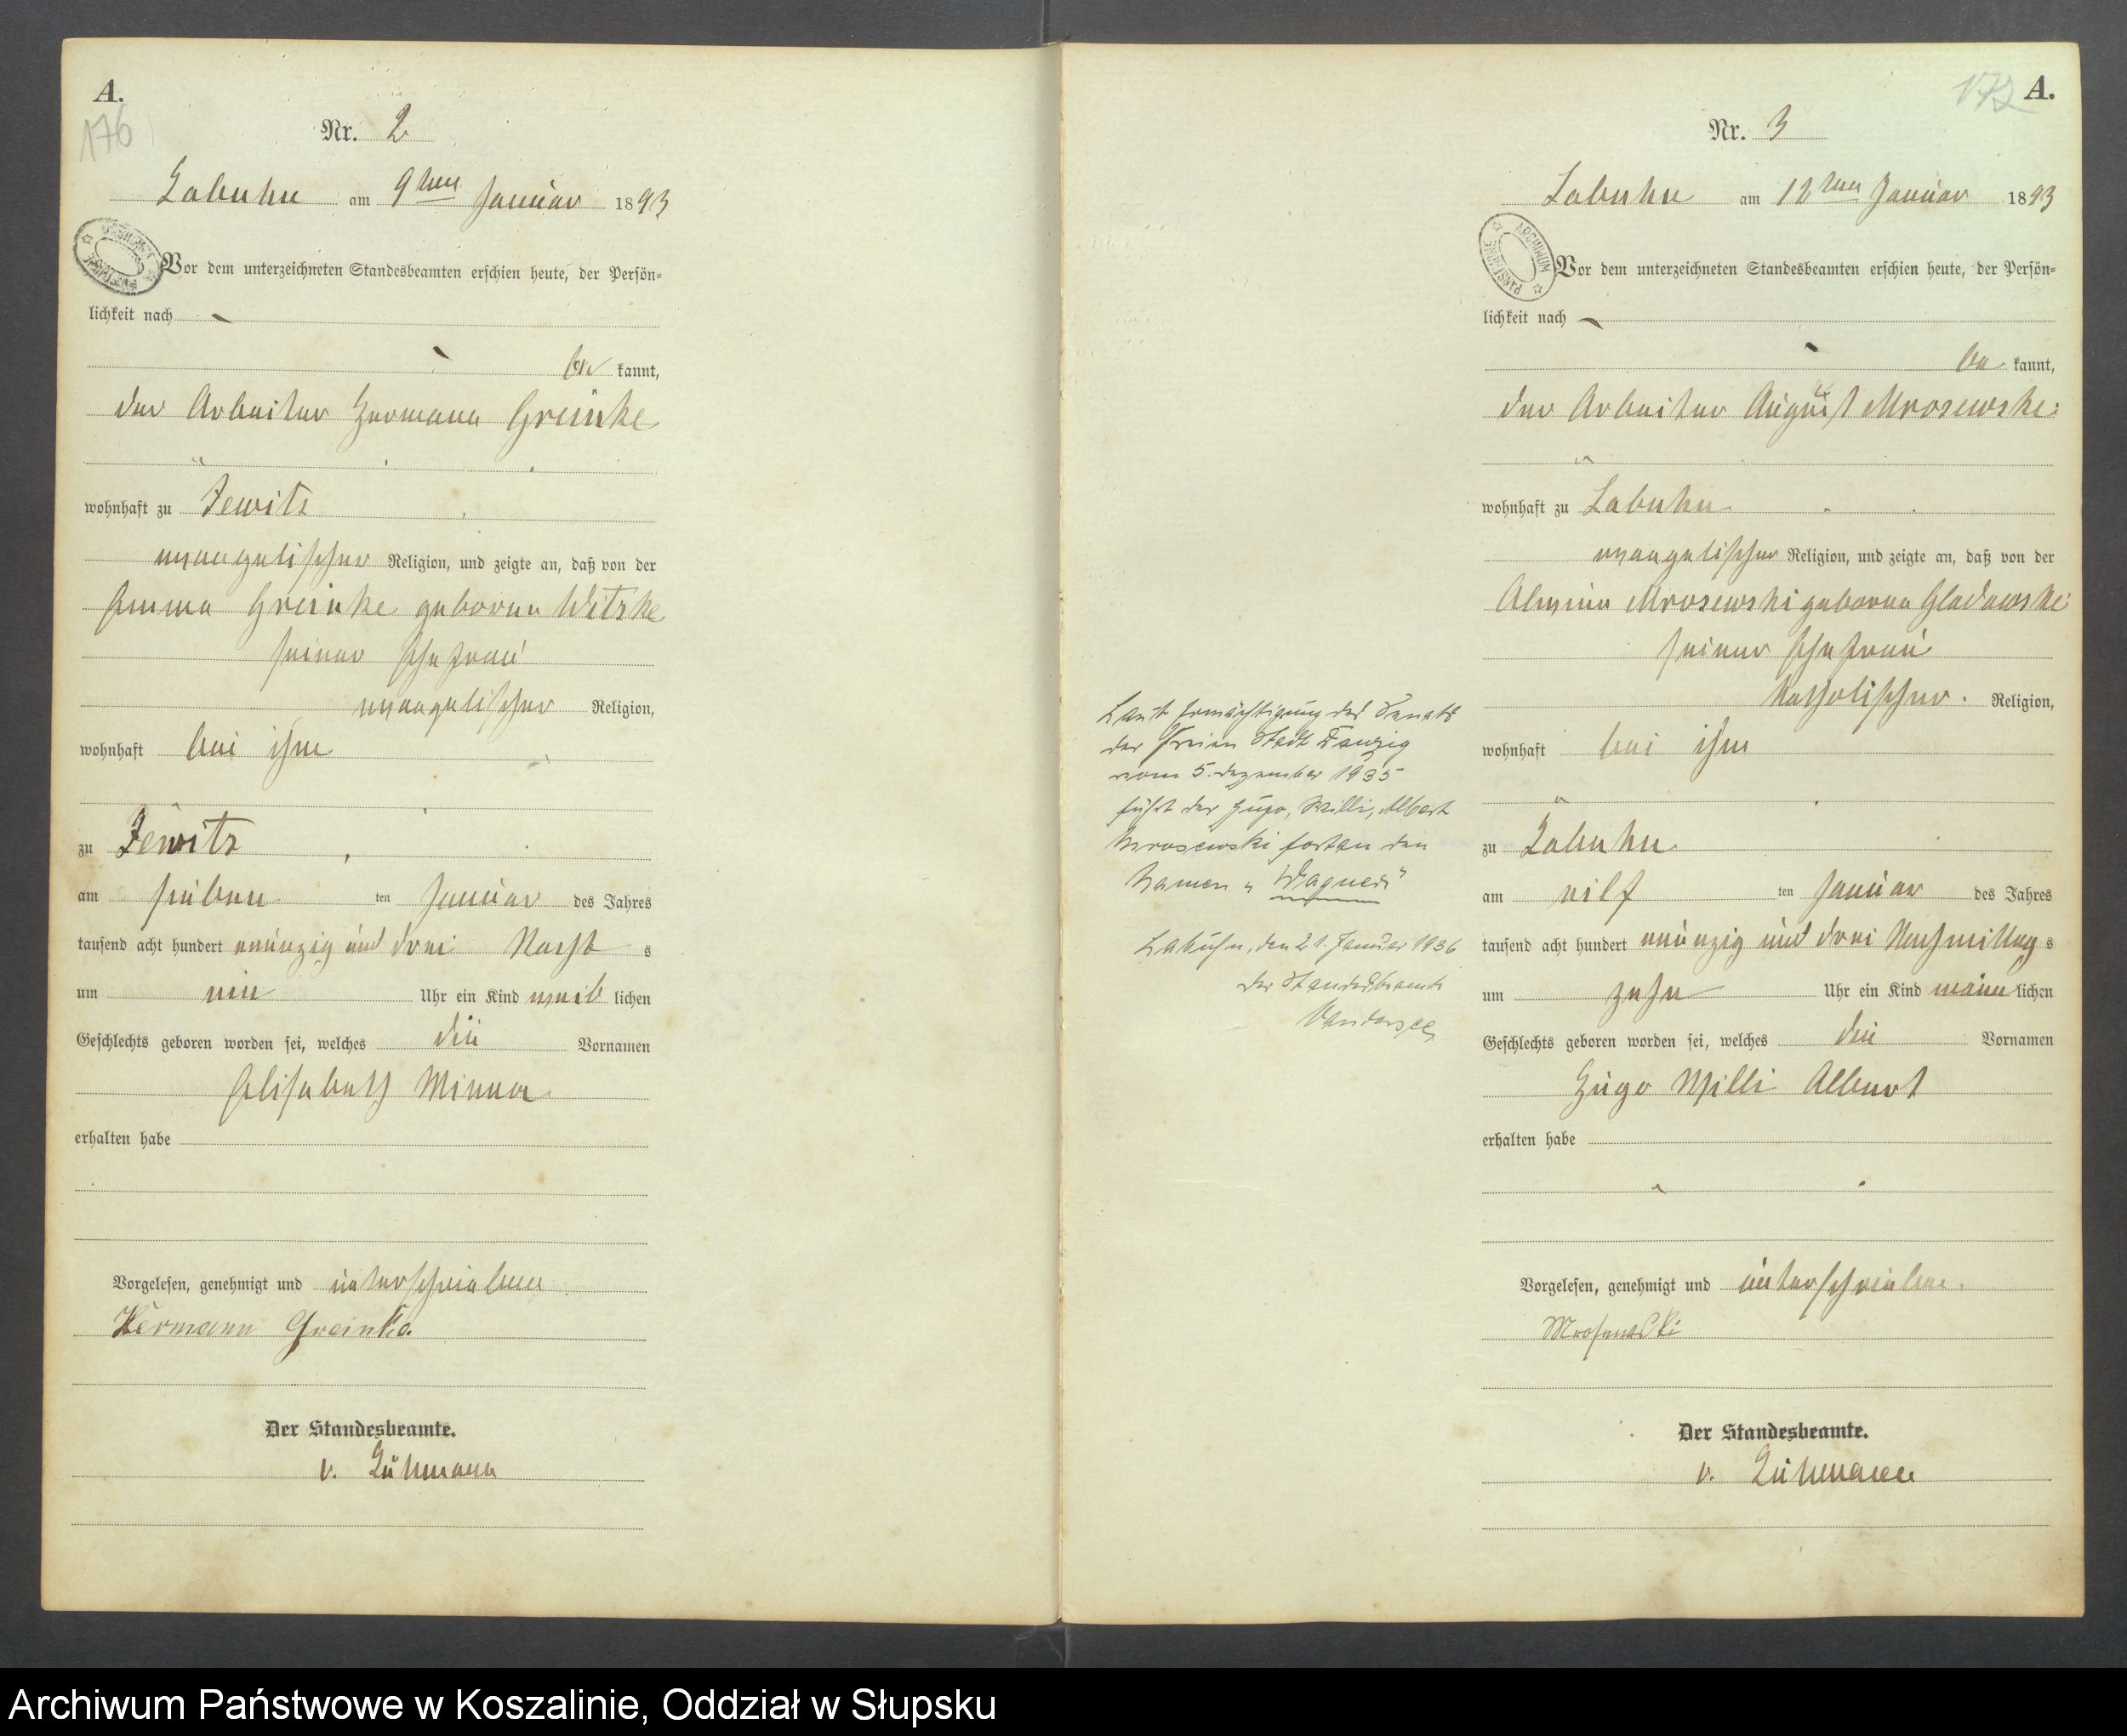 A.
176
Nr. 2
Labuhn am 9ten Januar 1893
Vor dem unterzeichneten Standesbeamten erschien heute, der Persön=
lichkeit nach
be kannt,
der Arbeiter Hermann Greinke
wohnhaft zu Jewitz
evangelischer Religion, und zeigte an, daß von der
Emma Greinke geborne Witzke
seiner Ehefrau
evangelischer Religion,
wohnhaft bei ihm
zu Jewitz
am sieben ten Januar des Jahres
tausend acht hundert neunzig und drei Nacht s
um ein Uhr ein Kind weib lichen
Geschlechts geboren worden sei, welches die Vornamen
Elisabeth Minna
erhalten habe
Vorgelesen, genehmigt und unterschrieben
Hermann Greinke.
Der Standesbeamte.
v.
A.
172
Nr. 3
Labuhn am 12ten Januar 1893
ARCHIWUM PAŃSTWOWE
Vor dem unterzeichneten Standesbeamten erschien heute, der Persön=
lichkeit nach
be kannt,
der Arbeiter August Mrosewski
wohnhaft zu Labuhn
evangelischer Religion, und zeigte an, daß von der
Mrosewski geborne Gladowski
seiner Ehefrau
katholischer Religion,
wohnhaft bei ihm
zu Labuhn
am eilf ten Januar des Jahres
tausend acht hundert neunzig und drei Nachmittag s
um zehn Uhr ein Kind männ lichen
Geschlechts geboren worden sei, welches die Vornamen
Hugo Willi Albert
erhalten habe
Vorgelesen, genehmigt und unterschrieben.
Mrosewski
Der Standesbeamte.
v.
Laut Ermächtigung des Senats
der Freien Stadt Danzig
vom 5. Dezember 1935
führt der Hugo, Willi, Albert
Mrosewski fortan den
Namen „Wagner“
Labuhn, den 21. Januar 1936
Der Standesbeamte
Archiwum Państwowe w Koszalinie, Oddział w Słupsku